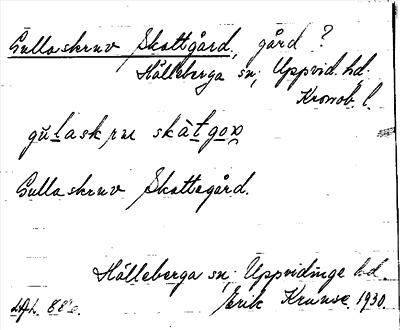 Gullaskruv Skattgård, gård ?
Hälleberga sn; Uppvid. hd.
Kronob. l.
skàtgoɒ
Gullaskruv Skattegård.
Hälleberga sn; Uppvidinge hd.
Erik Krause. 1930.